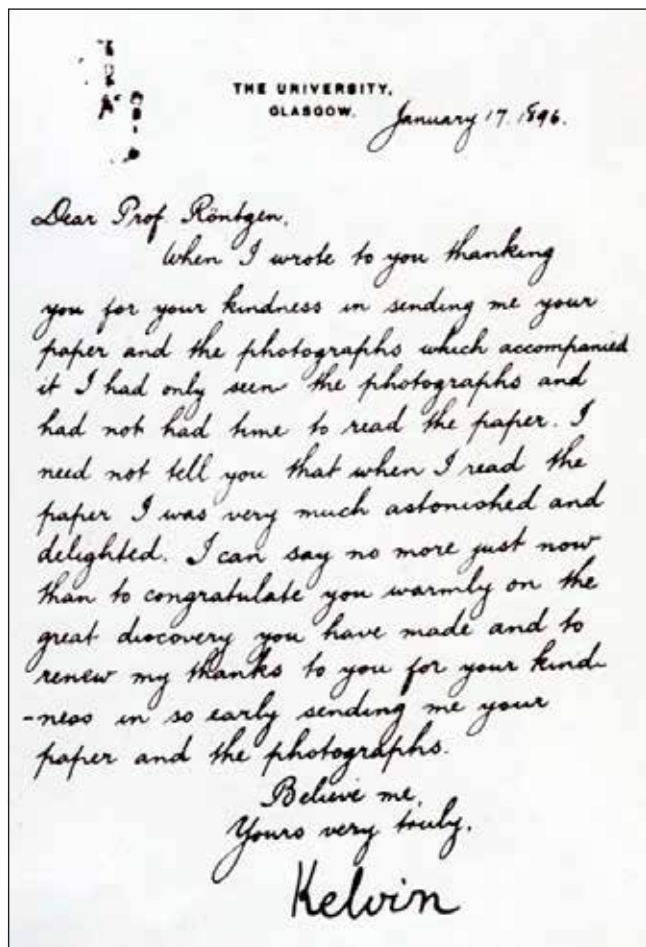 THE UNIVERSITY,
GLASGOW.
January 17. 1896.
Dear Prof Röntgen,
When I wrote to you thanking
you for your kindness in sending me your
paper and the photographs which accompanied
it I had only seen the photographs and
had not had time to read the paper. I
need not tell you that when I read the
paper I was very much astonished and
delighted. I can say no more just now
than to congratulate you warmly on the
great discovery you have made and to
renew my thanks to you for your kind-
-ness in so early sending me your
paper and the photographs.
Believe me,
Yours very truly,
Kelvin